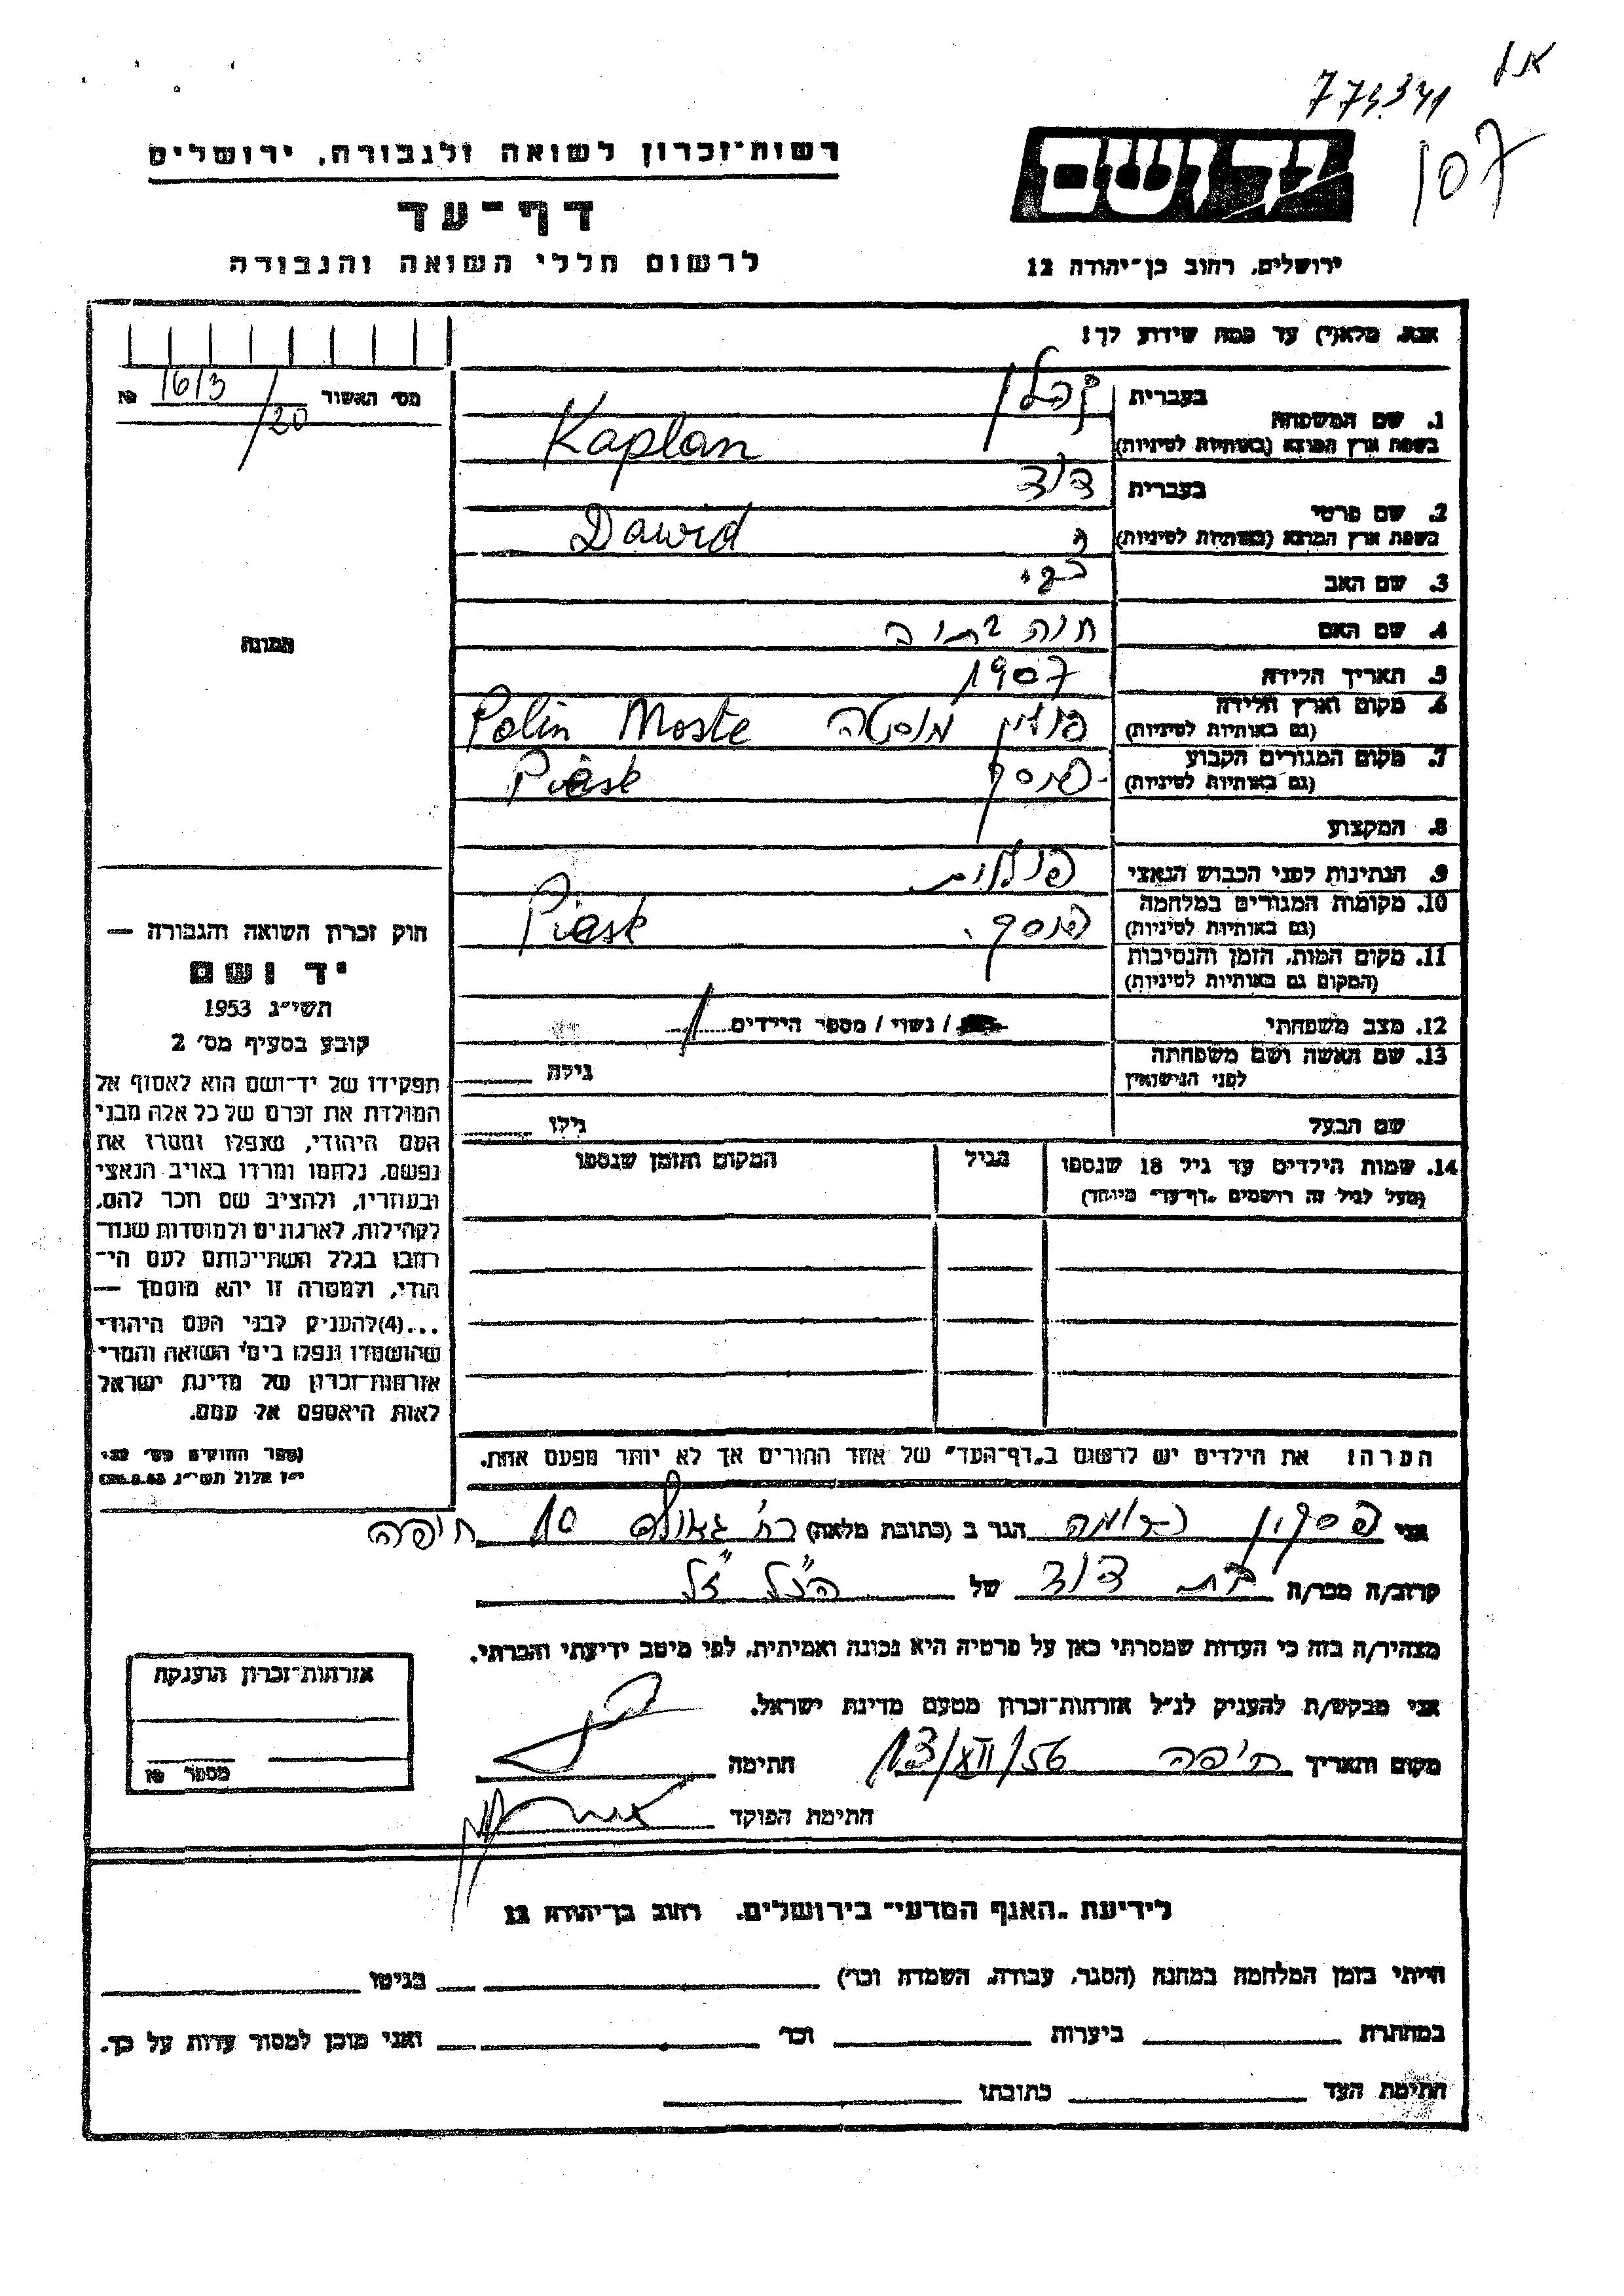 רשות־זכרון לשואה ולגבורה, ירושלים
דף־עד
לרשום חללי השואה והגבורה
יד ושם
ירושלים, רחוב בן־יהודה 12
107
אנא, מלא(י) עד כמה שידוע לך!
מס׳ האשור 1613/20 №
1. שם המשפחה
בעברית קפלן
בשפת ארץ המוצא (באותיות לטיניות) Kaplan
2. שם פרטי
בעברית דוד
בשפת ארץ המוצא (באותיות לטיניות) Dawid
3. שם האב
4. שם האם חנה
5. תאריך הלידה 1907
6. מקום וארץ הלידה
(גם באותיות לטיניות) פולין מוסטה Polin Moste
7. מקום המגורים הקבוע
(גם באותיות לטיניות) פיסק Piesk
8. המקצוע
9. הנתינות לפני הכבוש הנאצי פולנית
10. מקומות המגורים במלחמה
(גם באותיות לטיניות) פיסק. Piesk
11. מקום המות, הזמן והנסיבות
(המקום גם באותיות לטיניות)
12. מצב משפחתי / נשוי / מספר הילדים 1
13. שם האשה ושם משפחתה
לפני הנישואין גילה
שם הבעל גילו
14. שמות הילדים עד גיל 18 שנספו
(מעל לגיל זה רושמים „דף־עד״ מיוחד)
הגיל
המקום והזמן שנספו
תמונה
חוק זכרון השואה והגבורה —
יד ושם
תשי״ג 1953
קובע בסעיף מס׳ 2
תפקידו של יד־ושם הוא לאסוף אל
המולדת את זכרם של כל אלה מבני
העם היהודי, שנפלו ומסרו את
נפשם, נלחמו ומרדו באויב הנאצי
ובעוזריו, ולהציב שם וזכר להם,
לקהילות, לארגונים ולמוסדות שנח־
רבו בגלל השתייכותם לעם הי־
הודי, ולמטרה זו יהא מוסמך —
...(4)להעניק לבני העם היהודי
שהושמדו ונפלו בימי השואה והמרי
אזרחות־זכרון של מדינת ישראל
לאות היאספם אל עמם.
(ספר החוקים מס׳ 132,
י״ז אלול תשי״ג 28.8.53)
הערה: את הילדים יש לרשום ב„דף־העד״ של אחד ההורים אך לא יותר מפעם אחת.
אני פסקין נחמה הגר ב (כתובת מלאה) רח׳ גאולה 10 חיפה
קרוב/ה מכר/ה בת דוד של הנ״ל ז״ל
מצהיר/ה בזה כי העדות שמסרתי כאן על פרטיה היא נכונה ואמיתית, לפי מיטב ידיעתי והכרתי.
אני מבקש/ת להעניק לנ״ל אזרחות־זכרון מטעם מדינת ישראל.
מקום ותאריך חיפה 13/XII/56 חתימה
חתימת הפוקד
אזרחות־זכרון הוענקה
מספר №
לידיעת „האגף המדעי״ בירושלים, רחוב בן־יהודה 12
הייתי בזמן המלחמה במחנה (הסגר, עבודה, השמדה וכו׳) בגיטו
במחתרת ביערות וכו׳ ואני מוכן למסור עדות על כך.
חתימת העד כתובתו